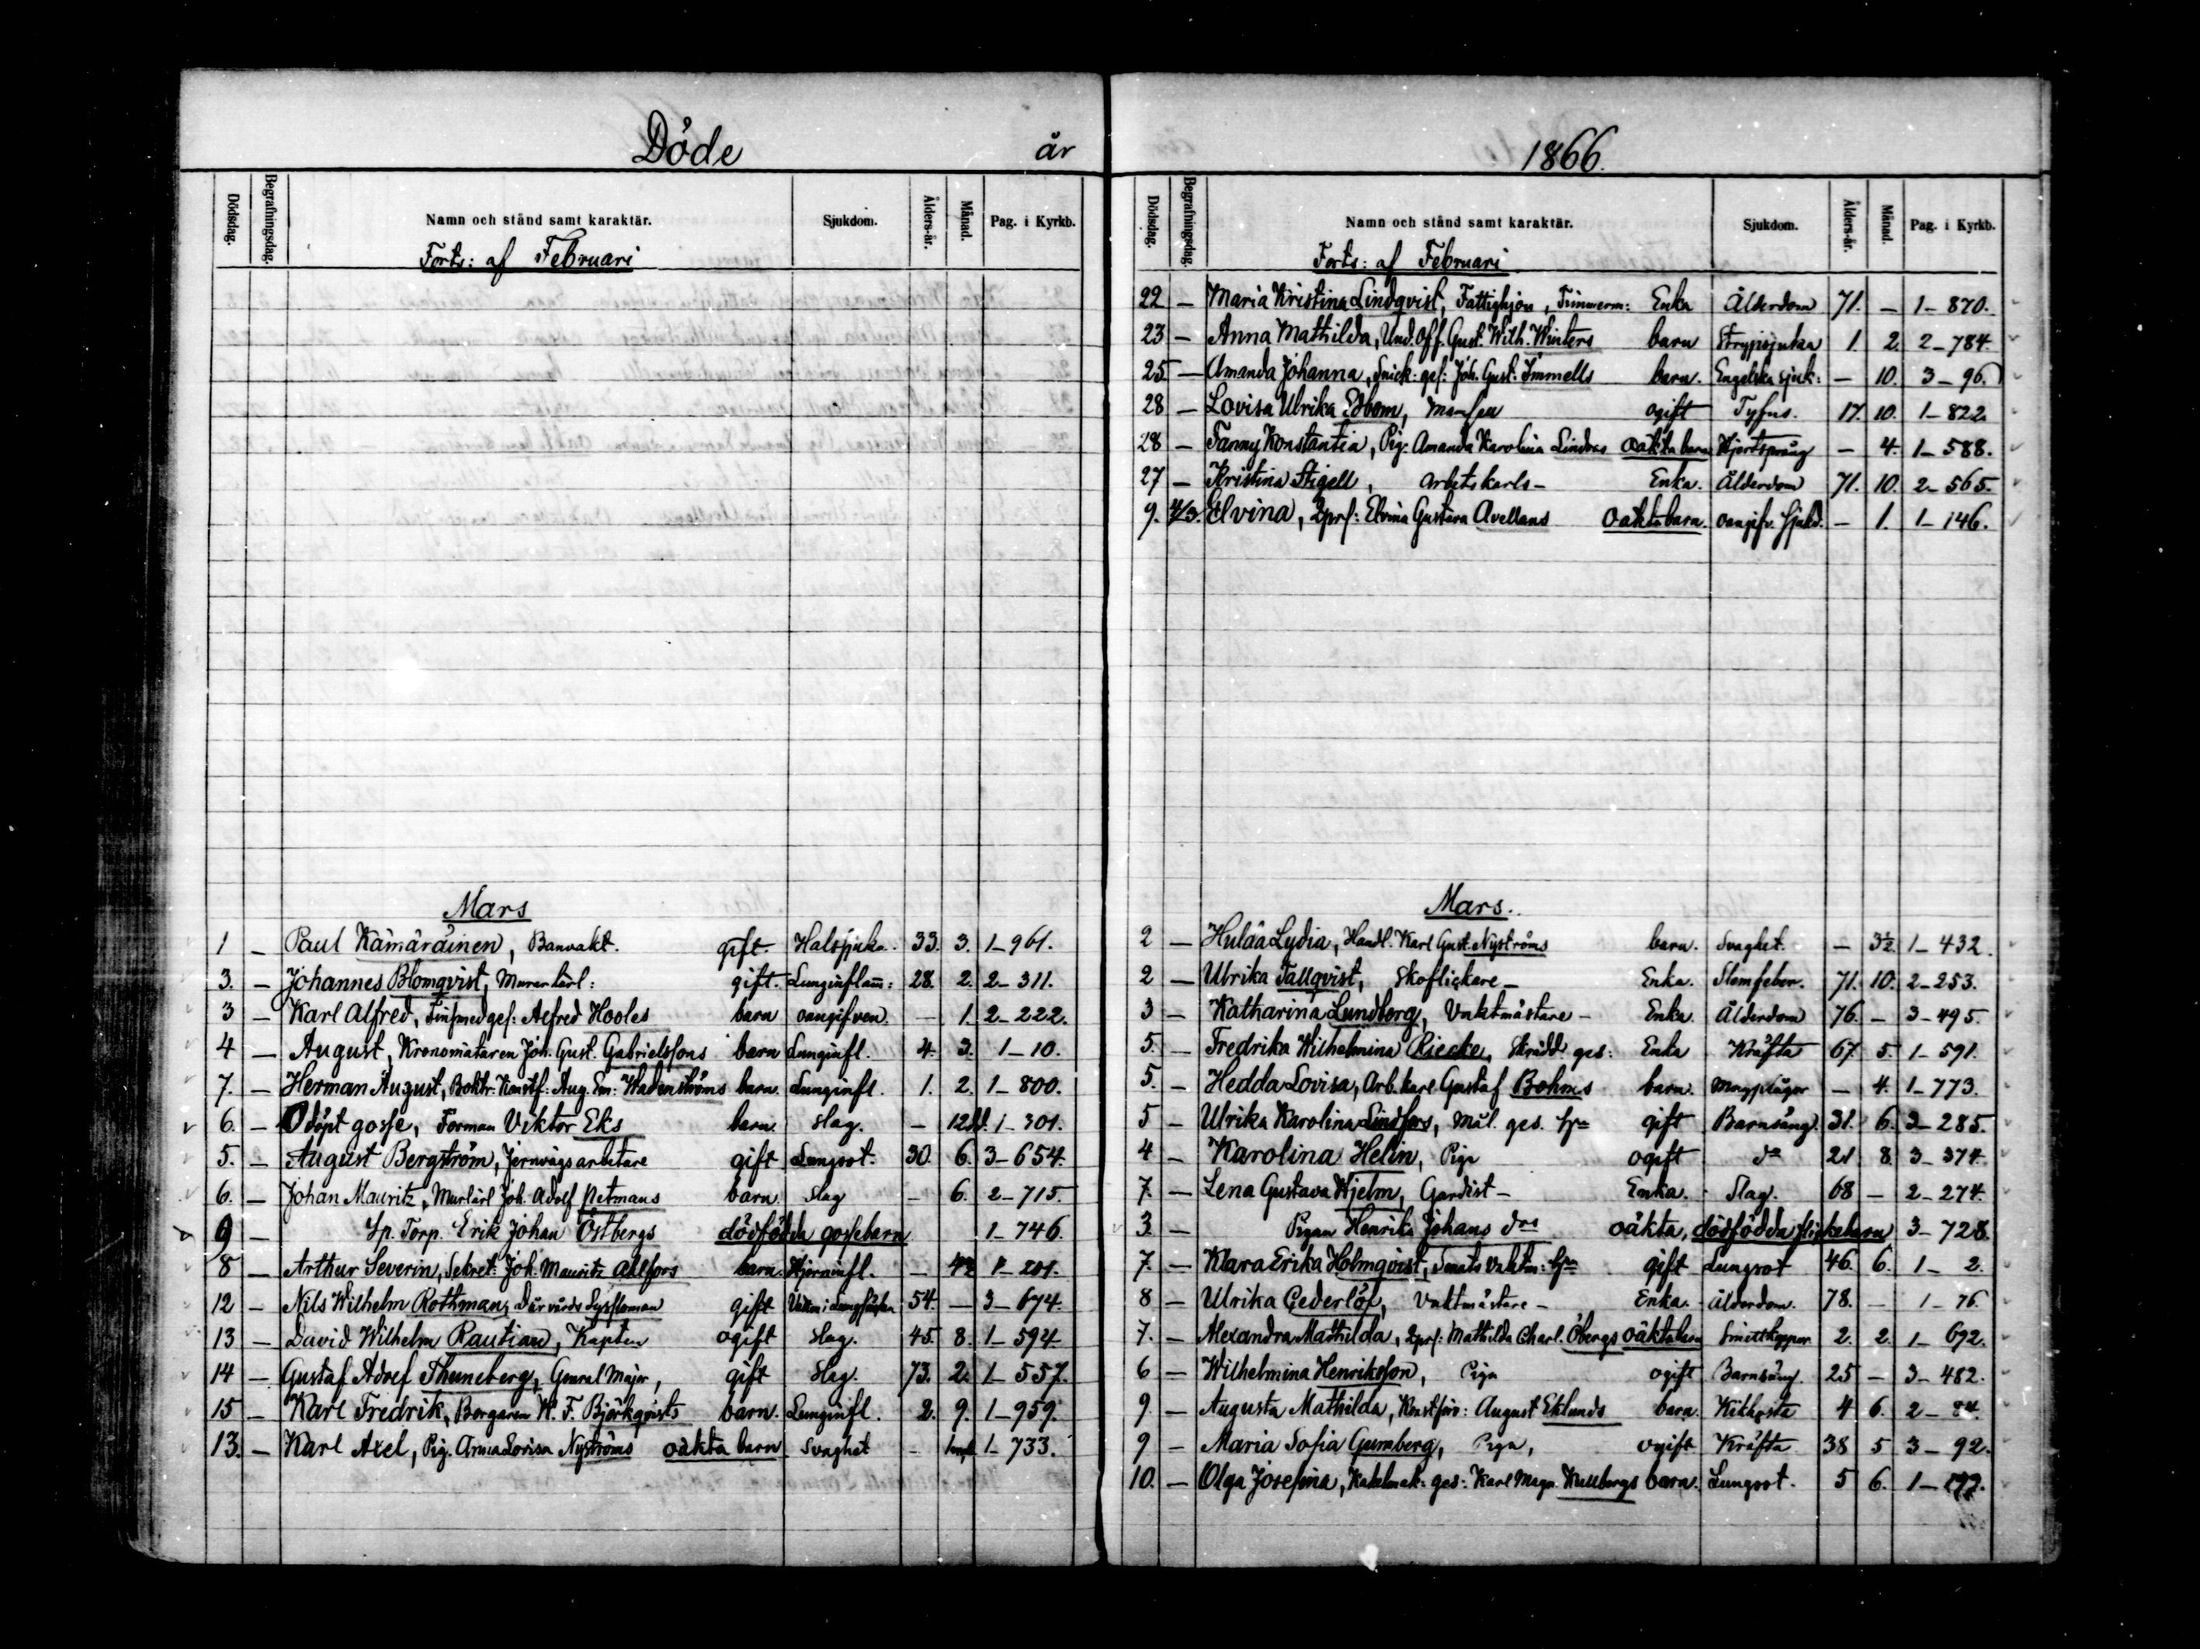 Döde år
Dödsdag. Begrafningsdag. Namn och stånd samt karaktär. Sjukdom. Ålders-år. Månad. Pag. i Kyrkb.
Forts: af Februari
Mars
1 — Paul Kämäräinen, Banvakt. gift. Halssjuka. 33. 3. 1-961.
3. — Johannes Blomqvist, Murarlärl: gift. Lunginflam: 28. 2. 2-311.
3 — Karl Alfred, Finsmedges: Alfred Hooles barn oangifven. — 1. 2-222.
4 — August, Kronomätaren Joh. Gust. Gabrielssons barn Lunginfl. 4. 3. 1-10.
7. — Herman August, Boktr. Konstf: Aug. Em: Wadenströms barn. Lunginfl. 1. 2. 1-800.
6. — Odöpt gosse, Forman Viktor Eks barn. Slag. — 1-301.
5. — August Bergström, Jernvägsarbetare gift Lungsot. 30. 6. 3-654.
6. — Johan Mauritz, Murlärl Joh. Adolf Retmans barn. Slag — 6. 2-715.
9 — Sp. Torp. Erik Johan Östbergs dödfödda gossebarn 1-746.
8 — Arthur Severin, Sekret: Joh. Mauritz barn. Hjerninfl. — 1-201.
12 — Nils Wilhelm Rothman, gift 54. — 3-674.
13 — David Wilhelm Rautian, Kapten ogift Slag. 45. 8. 1-594.
14 — Gustaf Adolf Thuneberg, General Major, gift Slag. 73. 2. 1-557.
15 — Karl Fredrik, Borgaren W. F. Björkqvists barn. Lunginfl. 2. 9. 1-959.
13. — Karl Axel, Pig. Anna Lovisa Nyströms oäkta barn Svaghet — 1-733.
1866.
Dödsdag. Begrafningsdag. Namn och stånd samt karaktär. Sjukdom. Ålders-år. Månad. Pag. i Kyrkb.
Forts: af Februari
22 — Maria Kristina Lindqvist, Fattighjon, Timmerm: Enka Ålderdom 71. — 1-870.
23 — Anna Mathilda, Und. Off. Gust. Wilh. Winters barn Strypsjuka 1. 2. 2-784.
25 — Amanda Johanna, Snick: ges: Joh. Gust. Immells barn. Engelska sjuk: — 10. 3-96.
28 — Lovisa Ulrika Edbom, Mamsell ogift Tyfus. 17. 10. 1-822.
28 — Fanny Konstantia, Pig. Amanda Karolina Lindros oäkta barn Hjertsprång — 4. 1-588.
27 — Kristina Stigell, Arbetskarls- Enka. Ålderdom 71. 10. 2-565.
9. 4/3. Elvina, Elvina Gustava Avellans oäkta barn. oangifv. sjukd. — 1. 1-146.
Mars.
2 — Hulda Lydia, Handl. Karl Gust. Nyströms barn. Svaghet. — 3½. 1-432.
2 — Ulrika Tallqvist, Skoflickare- Enka. Slemfeber. 71. 10. 2-253.
3 — Katharina Lundberg, Vaktmästare- Enka. Ålderdom 76. — 3-495.
5. — Fredrika Wilhelmina Riecke, Skrädd. ges: Enka Kräfta 67. 5. 1-591.
5. — Hedda Lovisa, Arb. karl Gustaf Bohms barn. Magplågor — 4. 1-773.
5 — Ulrika Karolina Lindfors, Mål. ges. gift Barnsäng 31. 6. 3-285.
4 — Karolina Helin, Piga ogift do 21 8. 3-374.
7. — Lena Gustava Hjelm, Gardist- Enka. Slag. 68 — 2-274.
3 — Pigan Henrika Johans drs oäkta, dödfödda flickebarn 3-728.
7. — Klara Erika Holmqvist, Senats vaktm: gift Lungsot 46. 6. 1-2.
8 — Ulrika Cederlöf, Vaktmästare- Enka. Ålderdom. 78. — 1-76.
7. — Alexandra Mathilda, Mathilda Charl. Öbergs oäkta barn Smittkoppor 2. 2. 1-692.
6 — Wilhelmina Henriksson, Piga ogift Barnsäng 25 — 3-482.
9. — Augusta Mathilda, Konstförv: August Eklunds barn. Kikhosta 4 6. 2-84.
9 — Maria Sofia Gumberg, Piga, ogift Kräfta 38 5 3-92.
10. — Olga Josefina, Kakelmak: ges: Karl Magn. Kullbergs barn. Lungsot. 5 6. 1-